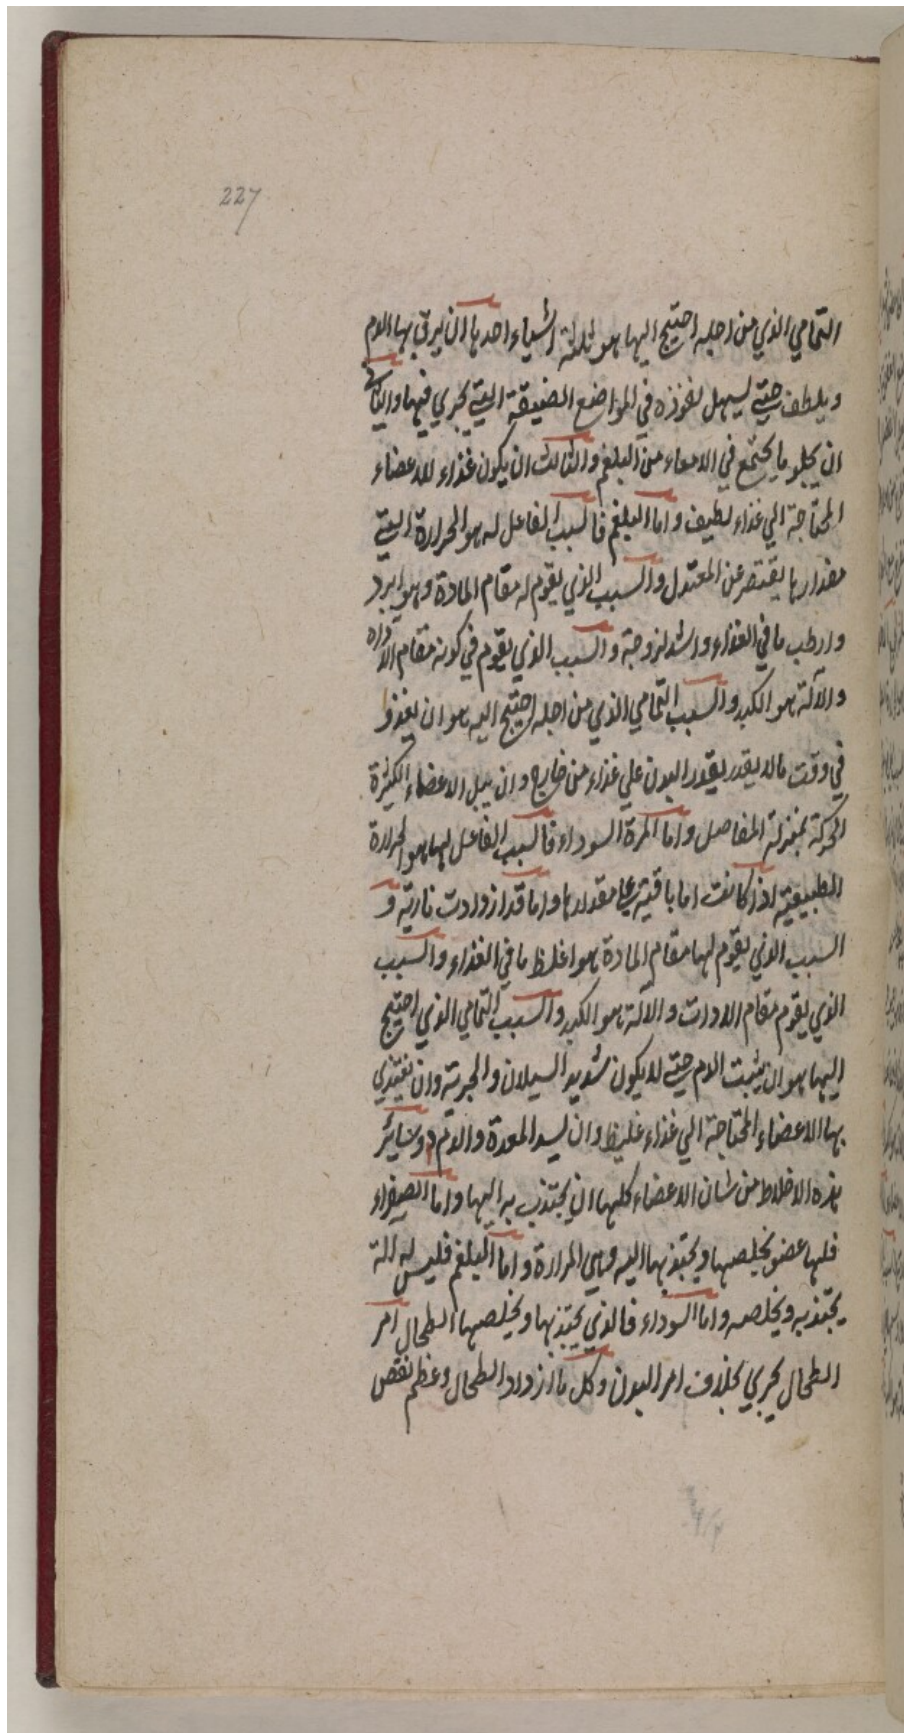 227
التمامي الذي من اجله احتيج اليها هو ثلثة اشياء احدها ان يرق بها الدم
ويلطف حتي يسهل نفوذه في المواضع الضيقة التي يجري فيها والثاني
ان يجلو ما يجتمع في الامعاء من البلغم والثالث ان يكون غذاء للاعضاء
المحتاجة الي غذاء لطيف واما البلغم فالسبب الفاعل له هو الحرارة التي
مقدارها يقتصر عن المعتدل والسبب الذي يقوم له مقام المادة وهو ابرد
وارطب ما في الغذاء واشد لزوجة والسبب الذي يقوم في كونه مقام الاداه
والآلة هو الكبد والسبب التمامي الذي من اجله احتيج اليه هو ان يغذو
في وقت مالا يقدر يقدر البدن علي غذاء من خارج وان يبل الاعضاء الكثيرة
الحركة بمنزلة المفاصل واما المرة السوداء فالسبب الفاعل لها هو الحرارة
الطبيعية اذا كانت اما باقية علي مقدارها واما قد ازدادت نارية و
السبب الذي يقوم لها مقام المادة هو اغلظ ما في الغذاء والسبب
الذي يقوم مقام الادات والآلة هو الكبد والسبب التمامي الذي احتيج
اليها هو ان يثبت الدم حتي لا يكون شديد السيلان والجرية وان تغتذي
بها الاعضاء المحتاجة الي غذاء غليظ وان يسد المعدة والدم دون ساير
هذه الاخلاط من شان الاعضاء كلها ان يجتذب به اليها واما الصفراء
فلها عضو يخلصها ويجتذبها اليه وهي المرارة واما البلغم فليس له الة
يجتذبه ويخلصه واما السوداء فالذي يجتذبها ويخلصها الطحال امر
الطحال يجري بخلاف امر البدن وكل ما ازداد الطحال وعظم نقص